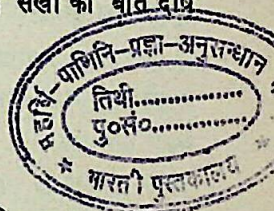 सखी की बात दीप्ति
महर्षि-पाणिनि-प्रज्ञा-अनुसन्धान
तिथी..............
पु०सं०..............
* भारती पुस्तकालय *